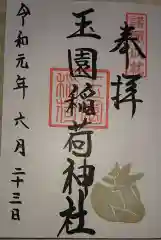 奉拝
玉園稲荷神社
令和元年六月二十三日